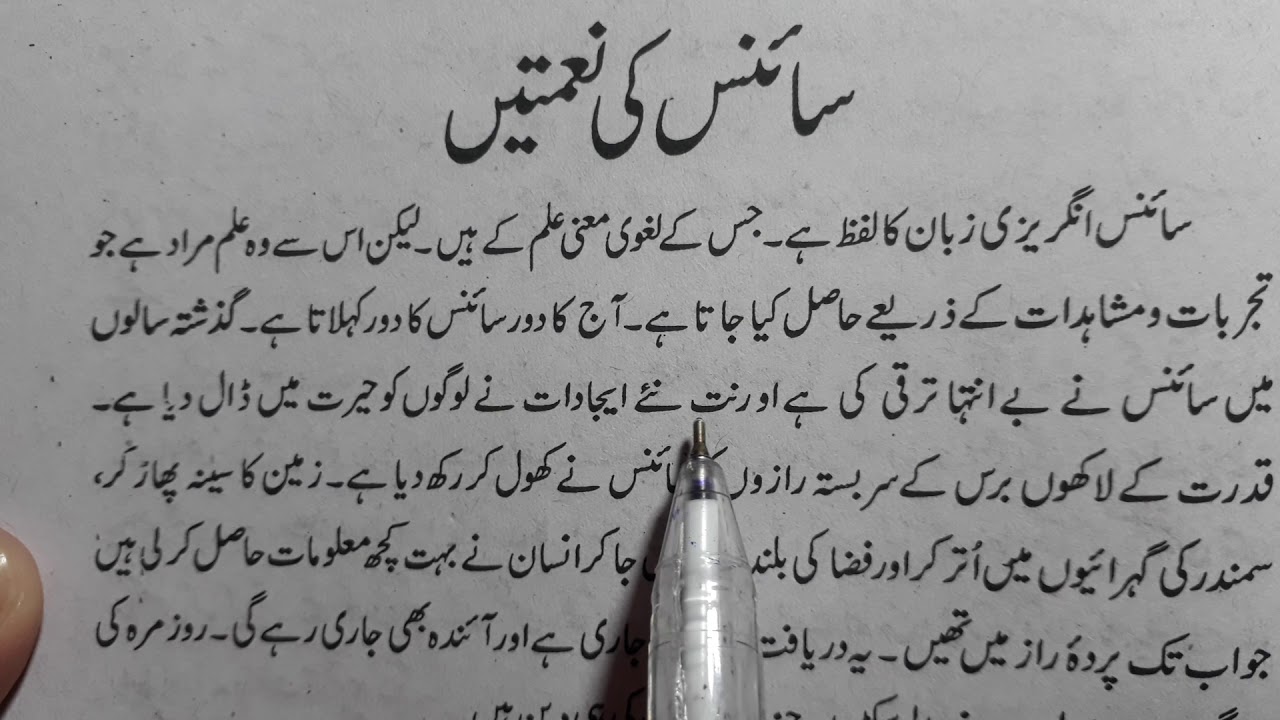 سائنس کی نعمتیں
سائنس انگریزی زبان کا لفظ ہے۔ جس کے لغوی معنی علم کے ہیں۔ لیکن اس سے وہ علم مراد ہے جو
تجربات و مشاہدات کے ذریعے حاصل کیا جاتا ہے۔ آج کا دور سائنس کا دور کہلاتا ہے۔ گذشتہ سالوں
میں سائنس نے بے انتہا ترقی کی ہے اور نت نئے ایجادات نے لوگوں کو حیرت میں ڈال دیا ہے۔
قدرت کے لاکھوں برس کے سربستہ رازوں سائنس نے کھول کر رکھ دیا ہے۔ زمین کا سینہ پھاڑ کر،
سمندر کی گہرائیوں میں اُتر کر اور فضا کی جا کر انسان نے بہت کچھ معلومات حاصل کر لی ہیں
جو اب تک پردۂ راز میں تھیں۔ یہ دریافت جاری ہے اور آئندہ بھی جاری رہے گی۔ روز مرہ کی